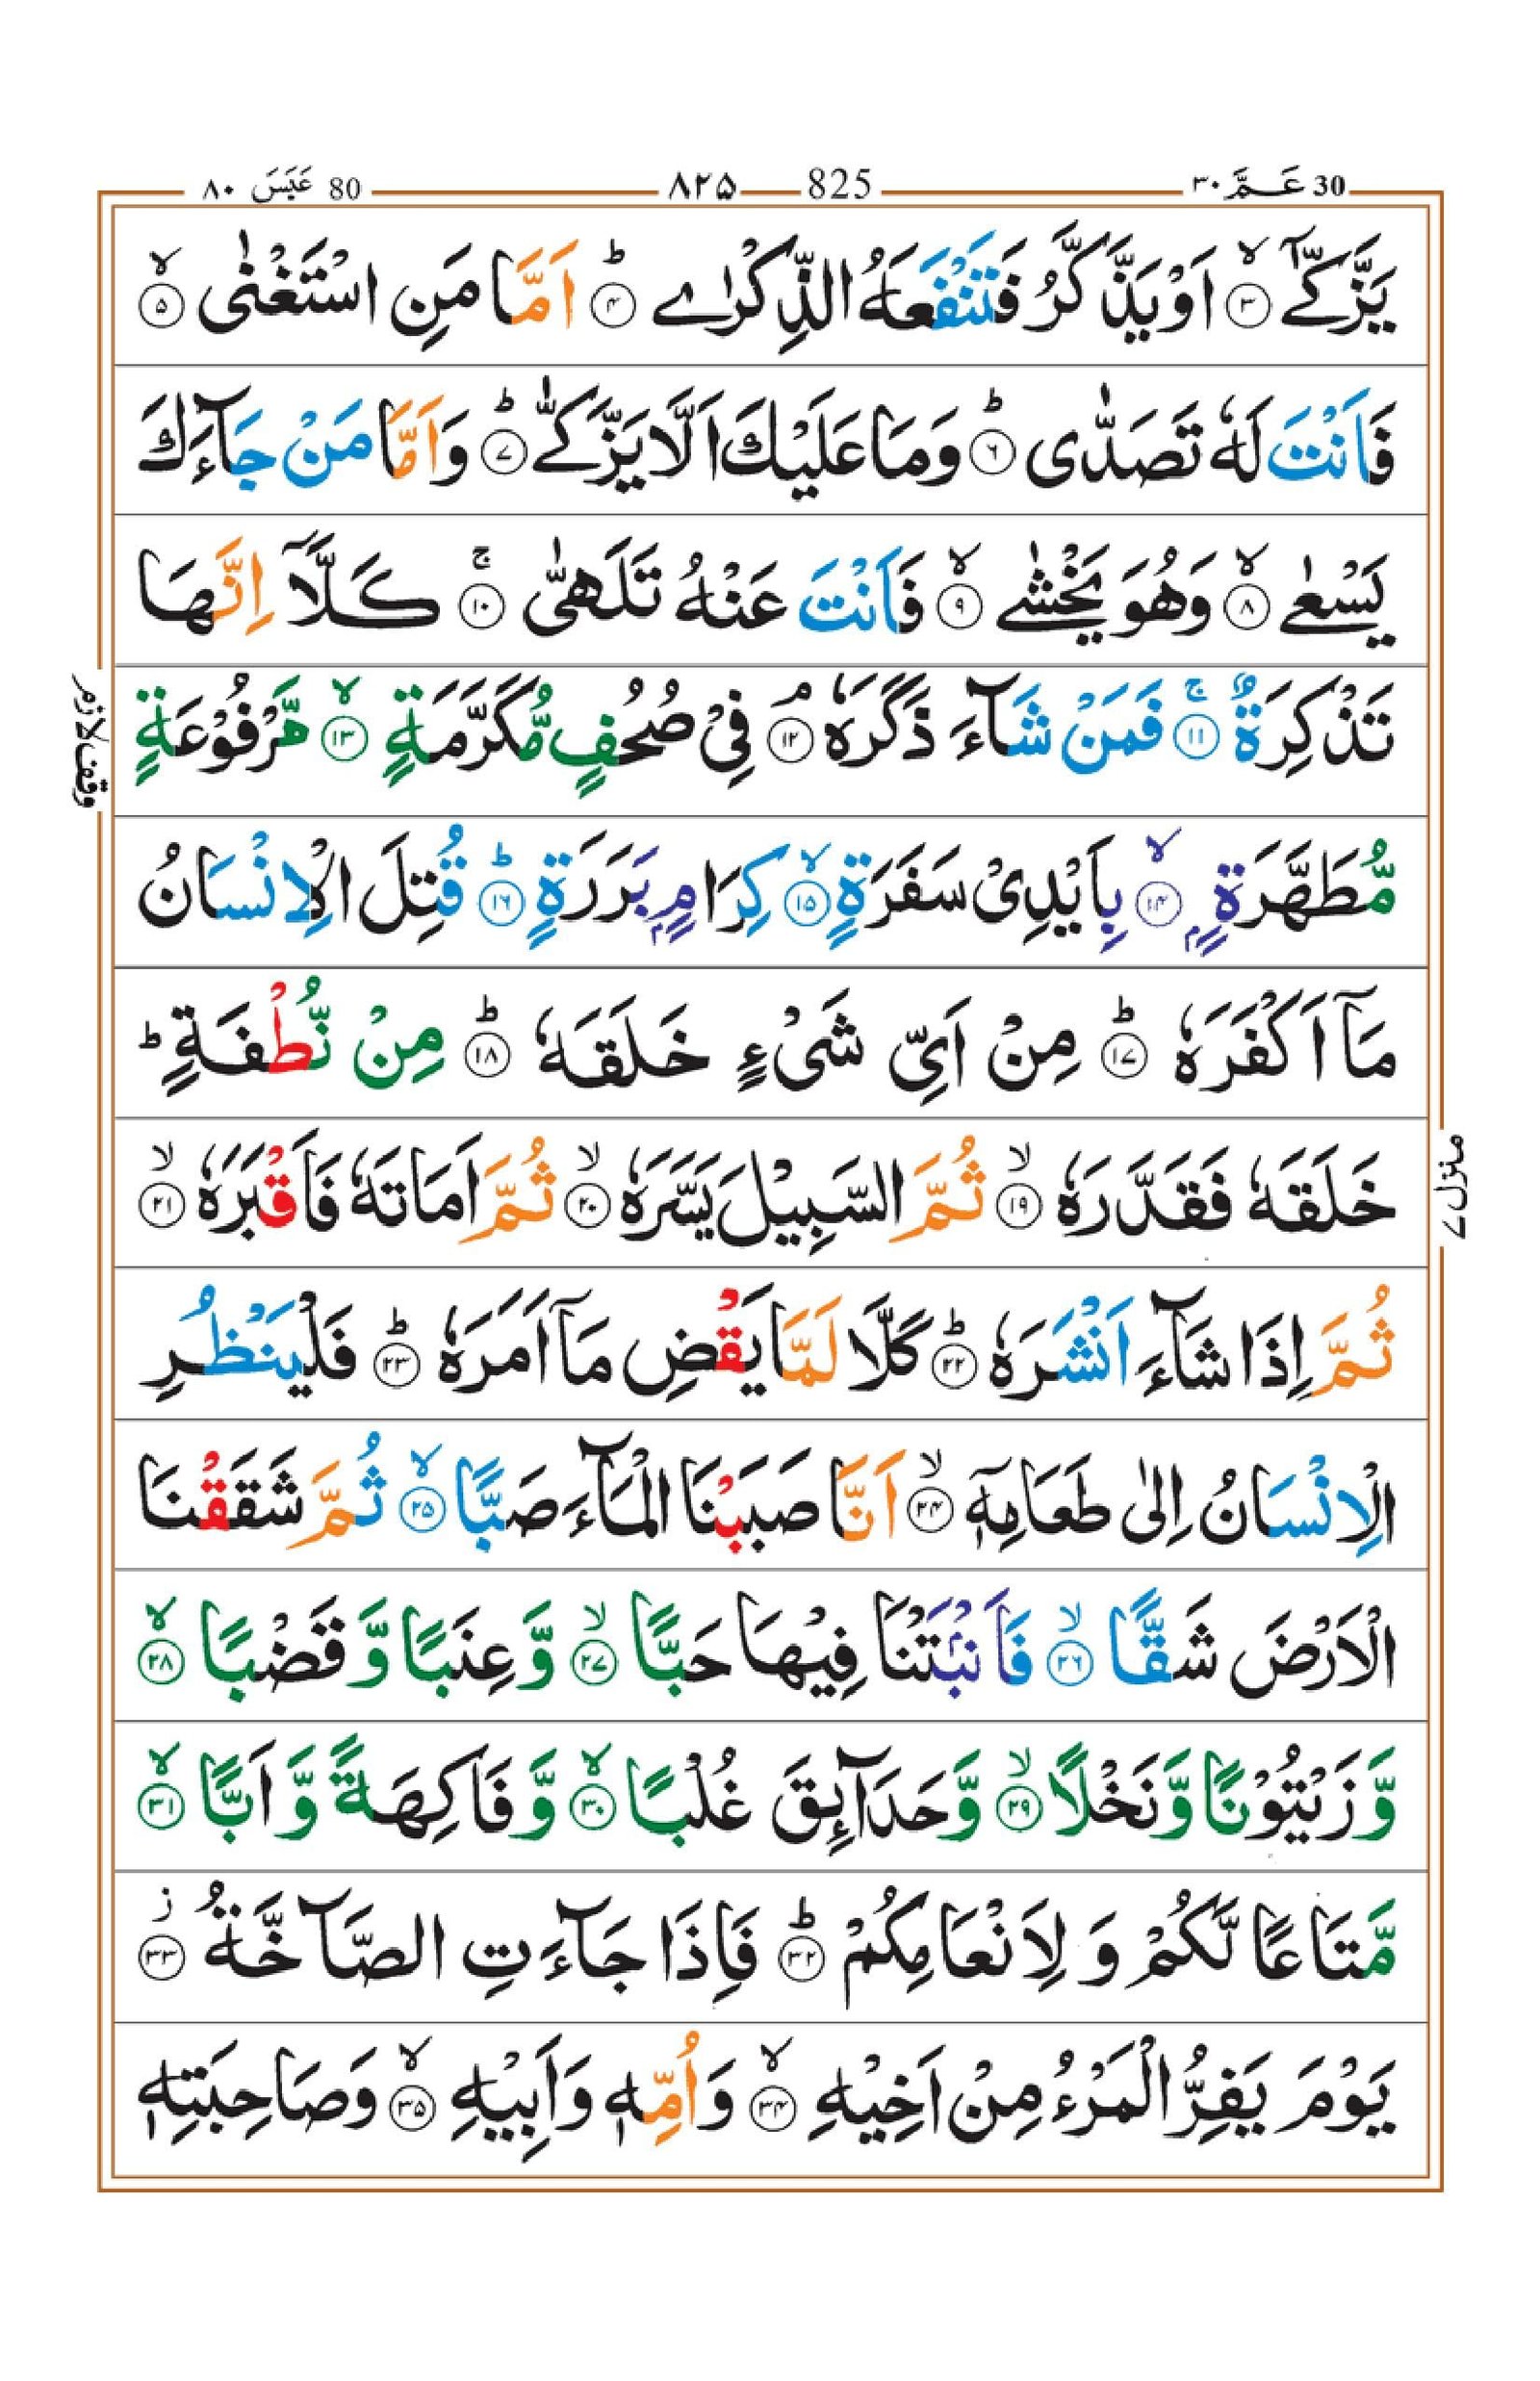 30 عَـمَّ ٣٠
825 ٨٢٥
80 عَبَسَ ٨٠
يَزَّكّٰۤى ۙ‏﴿۳﴾ اَوْ يَذَّكَّرُ فَتَنْفَعَهُ الذِّكْرٰى ؕ‏﴿۴﴾ اَمَّا مَنِ اسْتَغْنٰى ۙ‏﴿۵﴾
فَاَنْتَ لَهٗ تَصَدّٰى ؕ‏﴿۶﴾ وَمَا عَلَيْكَ اَلَّا يَزَّكّٰى ؕ‏﴿۷﴾ وَاَمَّا مَنْ جَآءَكَ
يَسْعٰى ۙ‏﴿۸﴾ وَهُوَ يَخْشٰى ۙ‏﴿۹﴾ فَاَنْتَ عَنْهُ تَلَهّٰى ۚ‏﴿۱۰﴾ كَلَّاۤ اِنَّهَا
تَذْكِرَةٌ ۚ‏﴿۱۱﴾ فَمَنْ شَآءَ ذَكَرَهٗ ۘ‏﴿۱۲﴾ فِىْ صُحُفٍ مُّكَرَّمَةٍ ۙ‏﴿۱۳﴾ مَّرْفُوْعَةٍ
وقف لازم
مُّطَهَّرَةٍ ۢ ۙ‏﴿۱۴﴾ بِاَيْدِىْ سَفَرَةٍ ۙ‏﴿۱۵﴾ كِرَامٍ ۢ بَرَرَةٍ ؕ‏﴿۱۶﴾ قُتِلَ الْاِنْسَانُ
مَاۤ اَكْفَرَهٗ ؕ‏﴿۱۷﴾ مِنْ اَىِّ شَىْءٍ خَلَقَهٗ ؕ‏﴿۱۸﴾ مِنْ نُّطْفَةٍ ؕ
خَلَقَهٗ فَقَدَّرَهٗ ۙ‏﴿۱۹﴾ ثُمَّ السَّبِيْلَ يَسَّرَهٗ ۙ‏﴿۲۰﴾ ثُمَّ اَمَاتَهٗ فَاَقْبَرَهٗ ۙ‏﴿۲۱﴾
منزل ۷
ثُمَّ اِذَا شَآءَ اَنْشَرَهٗ ؕ‏﴿۲۲﴾ كَلَّا لَمَّا يَقْضِ مَاۤ اَمَرَهٗ ؕ‏﴿۲۳﴾ فَلْيَنْظُرِ
الْاِنْسَانُ اِلٰى طَعَامِهٖۤ ۙ‏﴿۲۴﴾ اَنَّا صَبَبْنَا الْمَآءَ صَبًّا ۙ‏﴿۲۵﴾ ثُمَّ شَقَقْنَا
الْاَرْضَ شَقًّا ۙ‏﴿۲۶﴾ فَاَنْۢبَتْنَا فِيْهَا حَبًّا ۙ‏﴿۲۷﴾ وَّعِنَبًا وَّقَضْبًا ۙ‏﴿۲۸﴾
وَّزَيْتُوْنًا وَّنَخْلًا ۙ‏﴿۲۹﴾ وَّحَدَآئِقَ غُلْبًا ۙ‏﴿۳۰﴾ وَّفَاكِهَةً وَّاَبًّا ۙ‏﴿۳۱﴾
مَّتَاعًا لَّكُمْ وَلِاَنْعَامِكُمْ ؕ‏﴿۳۲﴾ فَاِذَا جَآءَتِ الصَّآخَّةُ ز‏﴿۳۳﴾
يَوْمَ يَفِرُّ الْمَرْءُ مِنْ اَخِيْهِ ۙ‏﴿۳۴﴾ وَاُمِّهٖ وَاَبِيْهِ ۙ‏﴿۳۵﴾ وَصَاحِبَتِهٖ